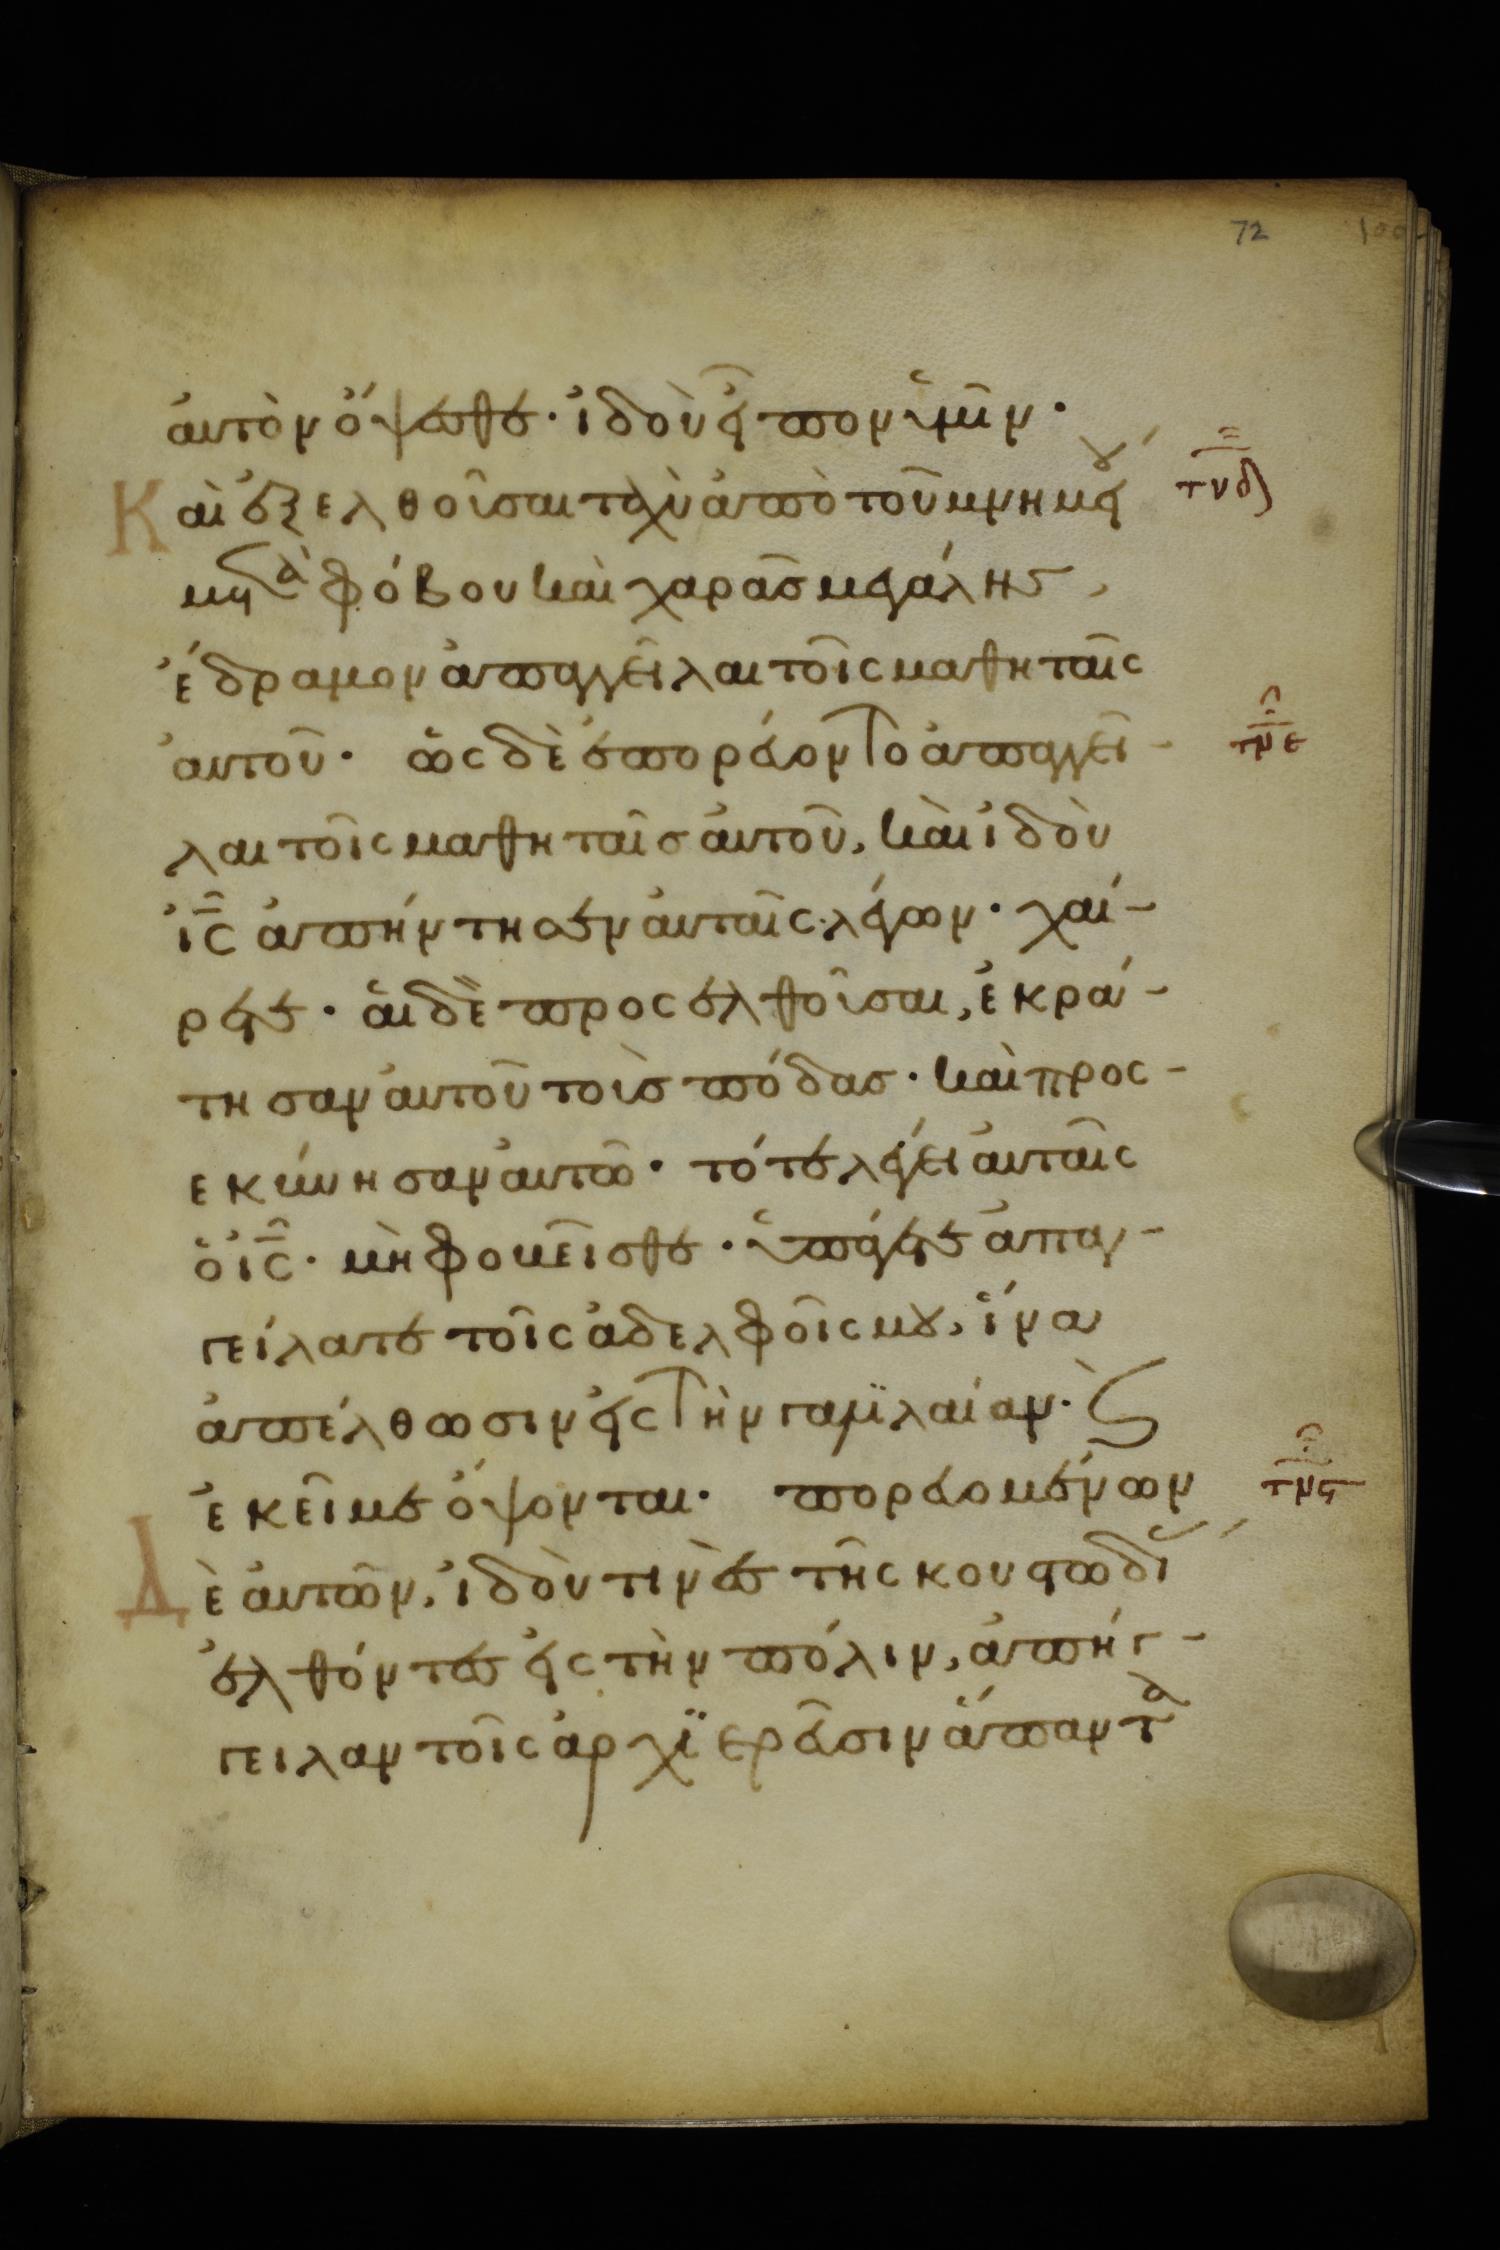 72 100
αὐτὸν ὄψεσθε· ἰδοὺ εἶπον ὑμῖν·
Καὶ ἐξελθοῦσαι ταχὺ ἀπὸ τοῦ μνημείου
τνδ
μετὰ φόβου καὶ χαρᾶς μεγάλης,
ἔδραμον ἀπαγγεῖλαι τοῖς μαθηταῖς
αὐτοῦ· ὡς δὲ ἐπορεύοντο ἀπαγγεῖ-
τνε
λαι τοῖς μαθηταῖς αὐτοῦ, καὶ ἰδοὺ
ἰς ἀπήντησεν αὐταῖς λέγων· χαί-
ρετε· αἱ δὲ προσελθοῦσαι, ἐκρά-
τησαν αὐτοῦ τοὺς πόδας· καὶ προς-
εκύνησαν αὐτῶ· τότε λέγει αὐταῖς
ὁ ἰς· μὴ φοβεῖσθε· ὑπάγετε ἀπαγ-
γείλατε τοῖς ἀδελφοῖς μου, ἵνα
ἀπέλθωσιν εἰς τὴν γαλιλαίαν· κἀ
ἐκεῖ με ὄψονται· πορευομένων
τνς
Δὲ αὐτῶν, ἰδού τινὲς τῆς κουστωδί
ἐλθόντες εἰς τὴν πόλιν, ἀπήγ-
γειλαν τοῖς ἀρχϊερεῦσιν ἅπαντα